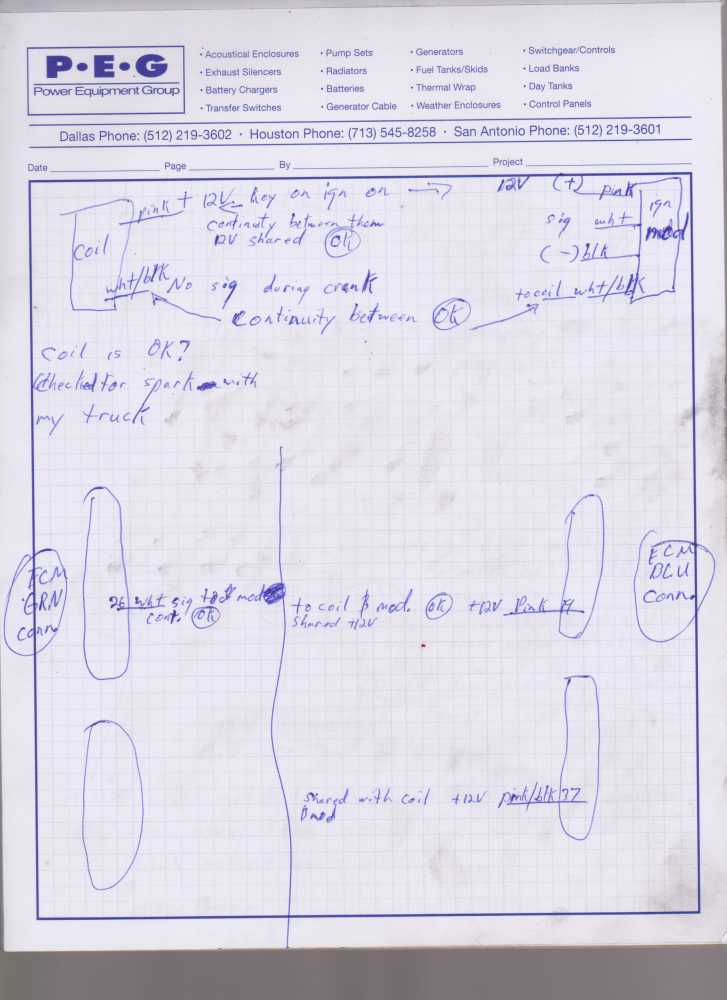 P•E•G
Power Equipment Group
• Acoustical Enclosures
• Exhaust Silencers
• Battery Chargers
• Transfer Switches
• Pump Sets
• Radiators
• Batteries
• Generator Cable
• Generators
• Fuel Tanks/Skids
• Thermal Wrap
• Weather Enclosures
• Switchgear/Controls
• Load Banks
• Day Tanks
• Control Panels
Dallas Phone: (512) 219-3602 • Houston Phone: (713) 545-8258 • San Antonio Phone: (512) 219-3601
Date Page By Project
pink + 12V key on ign on 12V (+) pink
continuity between them
12V shared OK
sig wht
ign
mod
coil
(-) blk
wht/blk No sig during crank
to coil wht/blk
Continuity between OK
Coil is OK?
Checked for spark with
my truck
ECM
GRN
conn.
26 wht sig to mod
cont. OK
to coil & mod. OK +12V Pink 19
shared +12V
ECM
BLU
Conn.
shared with coil +12V pink/blk 37
& mod